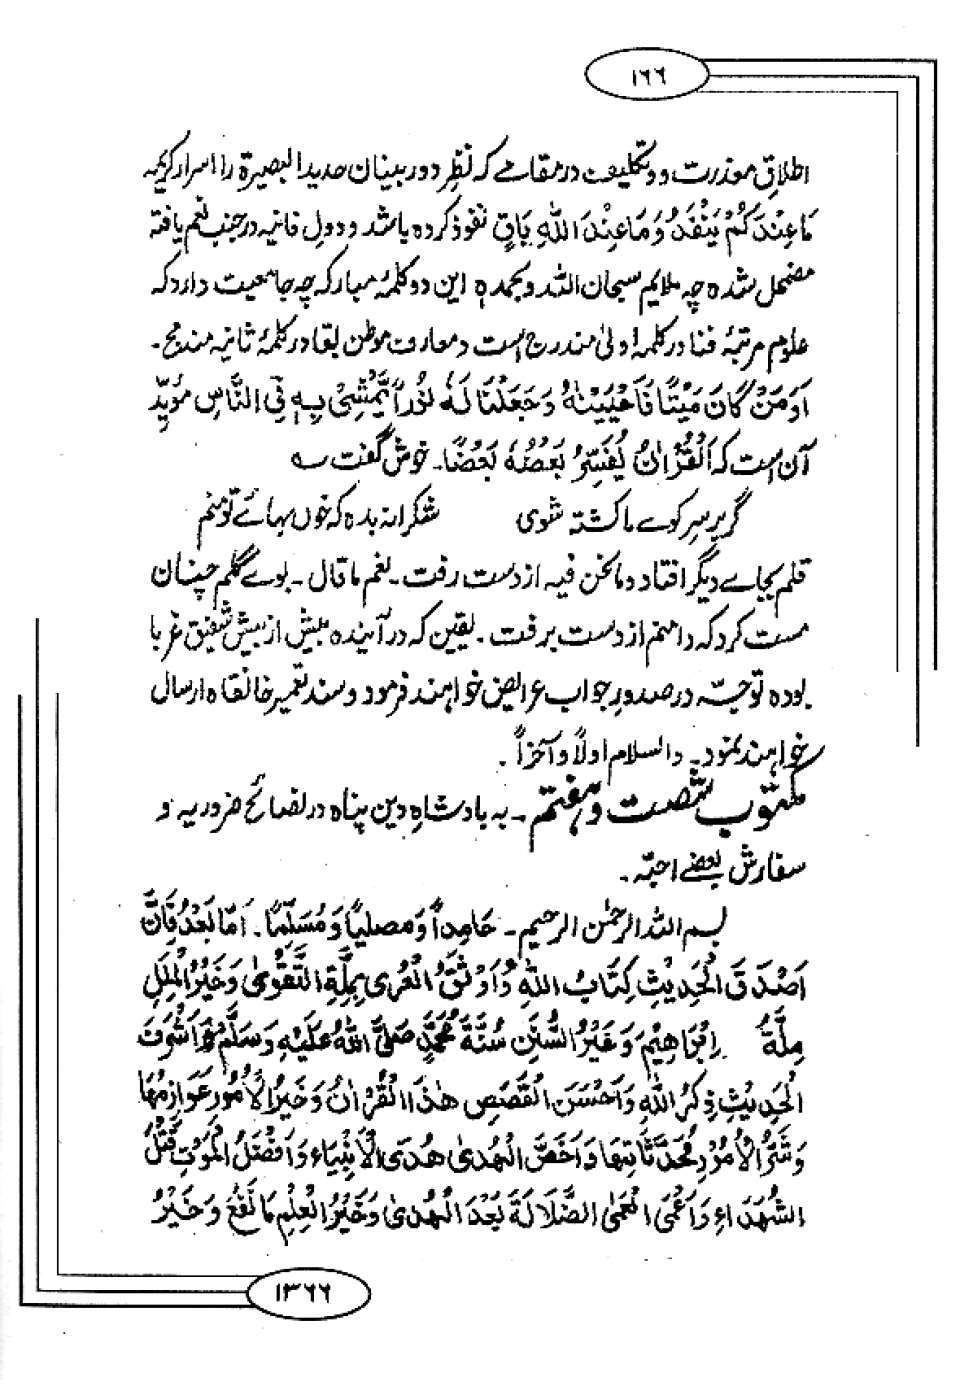 ۱۶۶
اطلاقِ معذرت و دتکلیف در مقامے کہ نظرِ دور بینان حدید البصیرۃ را اسرارِ کریمہ
مَا عِنْدَكُمْ يَنْفَدُ وَمَا عِنْدَ اللّٰهِ بَاقٍ نفوذ کردہ باشد و دولِ فانیہ در جنبِ نعم یافتہ
مضمحل شدہ چہ ملایم سبحان اللہ و بحمدہٖ این دو کلمۂ مبارکہ چہ جامعیت دارد کہ
علومِ مرتبۂ فنا در کلمۂ اولیٰ مندرج است و معارفِ موطن بقا در کلمۂ ثانیہ مندمج۔
اَوَمَنْ كَانَ مَيْتًا فَاَحْيَيْنٰهُ وَجَعَلْنَا لَهٗ نُوْراً يَّمْشِيْ بِهٖ فِي النَّاسِ مؤیِّدِ
آن است کہ اَلْقُرْاٰنُ يُفَسِّرُ بَعْضُهٗ بَعْضًا۔ خوش گفت ؎
گر بر سرِ کوے ما کشتہ شوی شکرانہ بدہ کہ خوں بہاے تو منم
قلم بجاے دیگر افتاد و مانحن فیہ از دست رفت۔ نعم ما قال۔ بوے گلم چنان
مست کرد کہ دامنم از دست برفت۔ یقین کہ در آیندہ بیش از پیش شفیق غربا
بودہ توجہ در صدورِ جواب عرایض خواہند فرمود و سند تعمیر خانقاہ ارسال
خواہند نمود۔ والسلام اولاً و آخراً۔
مکتوب شصت و ہفتم۔ بہ بادشاہِ دین پناہ در نصائح ضروریہ و
سفارش بعضے احبّہ۔
بسم اللہ الرحمٰن الرحیم۔ حَامِداً وَمُصلياً وَمُسَلِّمًا۔ اَمَّا بَعْدُ فَاِنَّ
اَصْدَقَ الْحَدِيْثِ كِتَابُ اللّٰهِ وَاَوْثَقُ الْعُرىٰ بِمِلَّةِ التَّقْوىٰ وَخَيْرُ الْمِلَلِ
مِلَّةُ اِبْرَاهِيْمَ وَخَيْرُ السُّنَنِ سُنَّةُ مُحَمَّدٍ صَلَّى اللّٰهُ عَلَيْهِ وَسَلَّمَ وَاَشْرَفَ
الْحَدِيْثِ ذِكْرُ اللّٰهِ وَاَحْسَنَ الْقَصَصِ هٰذَا الْقُرْاٰنُ وَخَيْرُ الْاُمُوْرِ عَوَازِمُهَا
وَشَرُّ الْاُمُوْرِ مُحْدَثَاتُهَا وَاَخَصُّ الْهُدىٰ هُدَى الْاَنْبِيَاءِ وَاَفْضَلُ الْمَوْتِ قَتْلُ
الشُّهَدَاءِ وَاَعْمَى الْعَمىٰ الضَّلَالَةَ بَعْدَ الْهُدىٰ وَخَيْرُ الْعِلْمِ مَا نَفَعَ وَخَيْرُ
۱۳۶۶